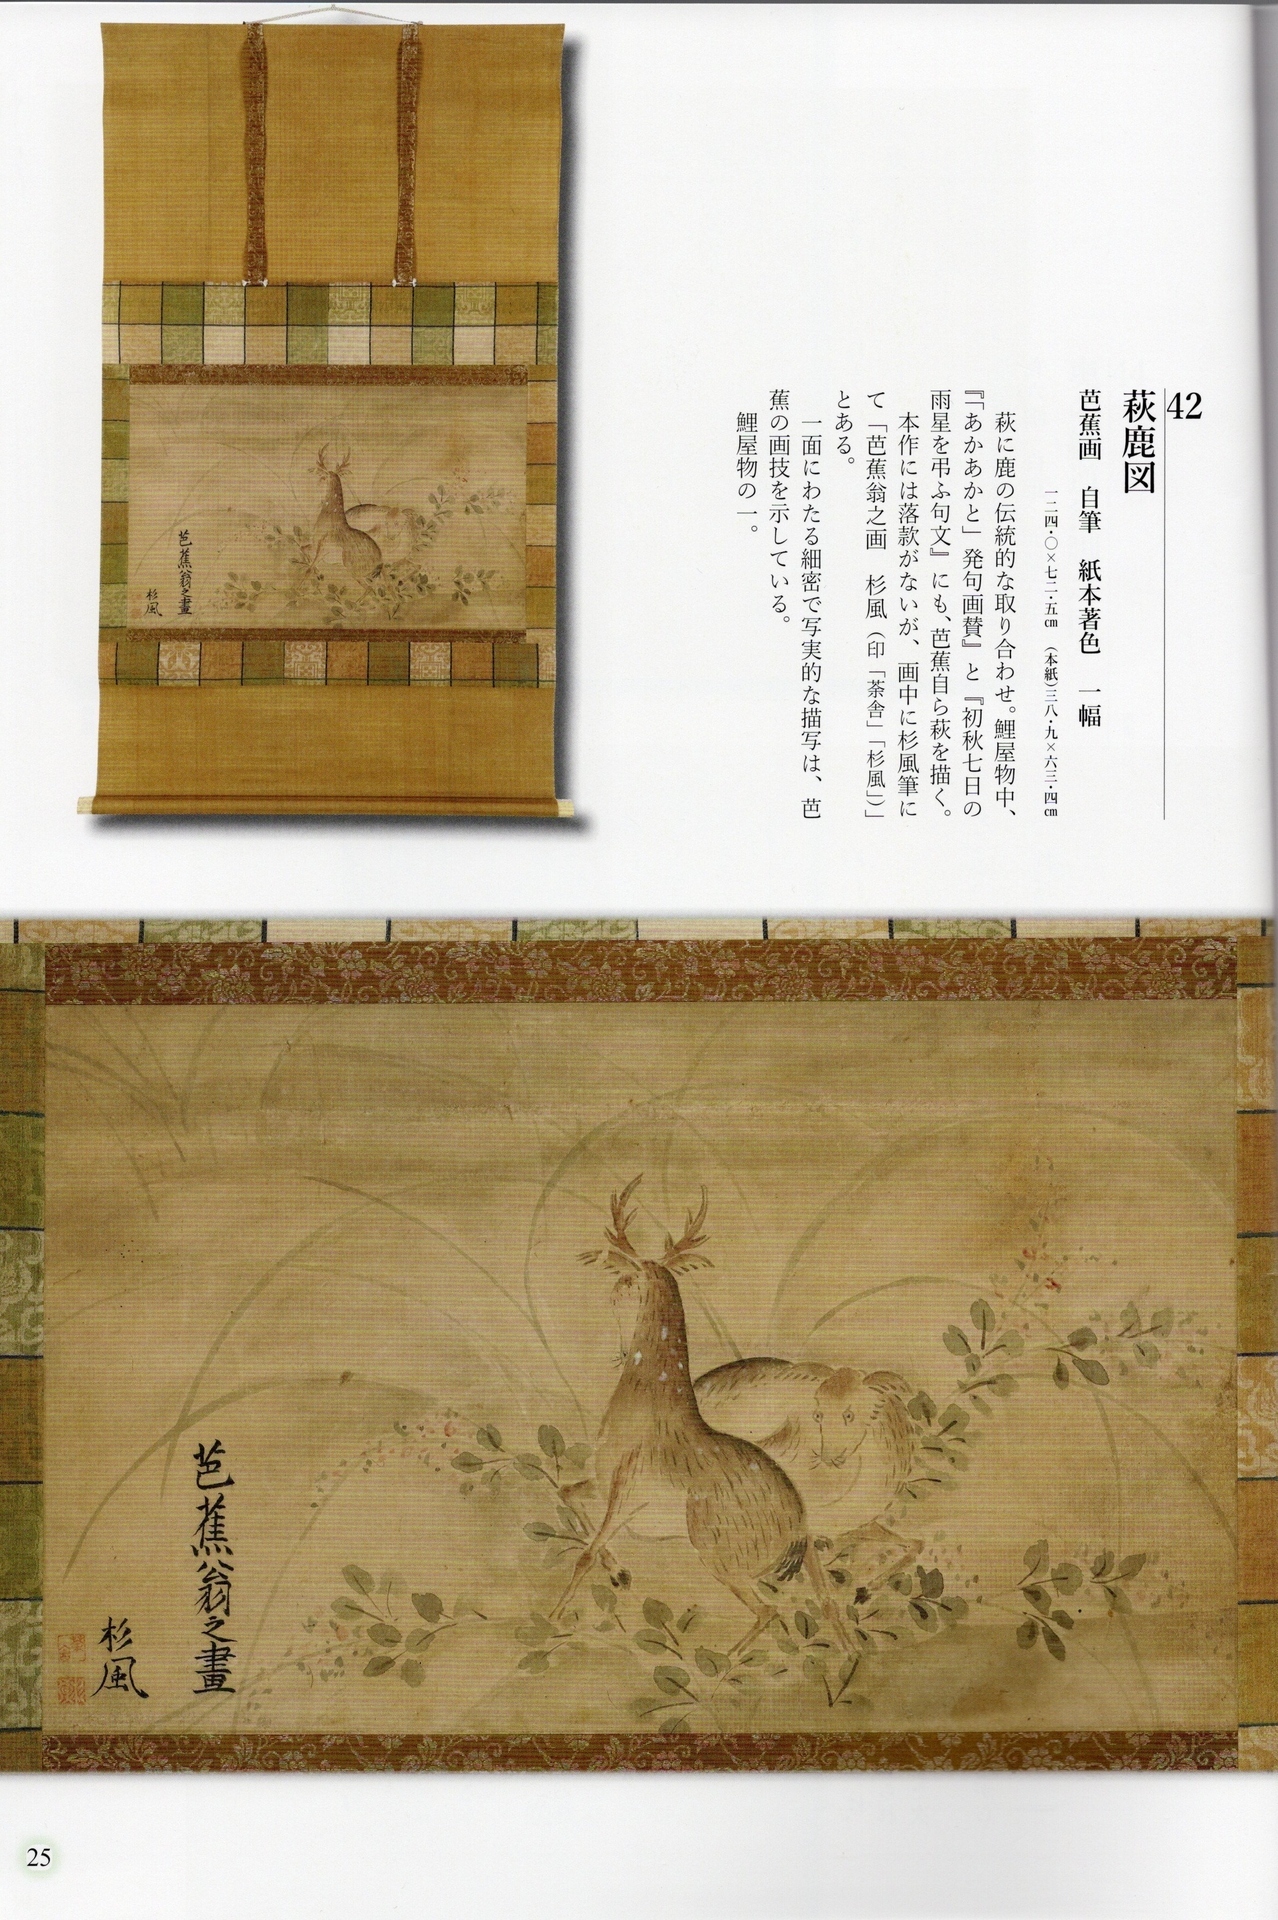 42
萩鹿図
芭蕉画　自筆　紙本著色　一幅
一二四・〇×七二・五㎝　（本紙）三八・九×六三・四㎝
萩に鹿の伝統的な取り合わせ。鯉屋物中、
『「あかあかと」発句画賛』と『初秋七日の
雨星を弔ふ句文』にも、芭蕉自ら萩を描く。
本作には落款がないが、画中に杉風筆に
て「芭蕉翁之画　杉風（印「茶舎」「杉風」）」
とある。
一面にわたる細密で写実的な描写は、芭
蕉の画技を示している。
鯉屋物の一。
芭蕉翁之畫
杉風
芭蕉翁之畫
杉風
25